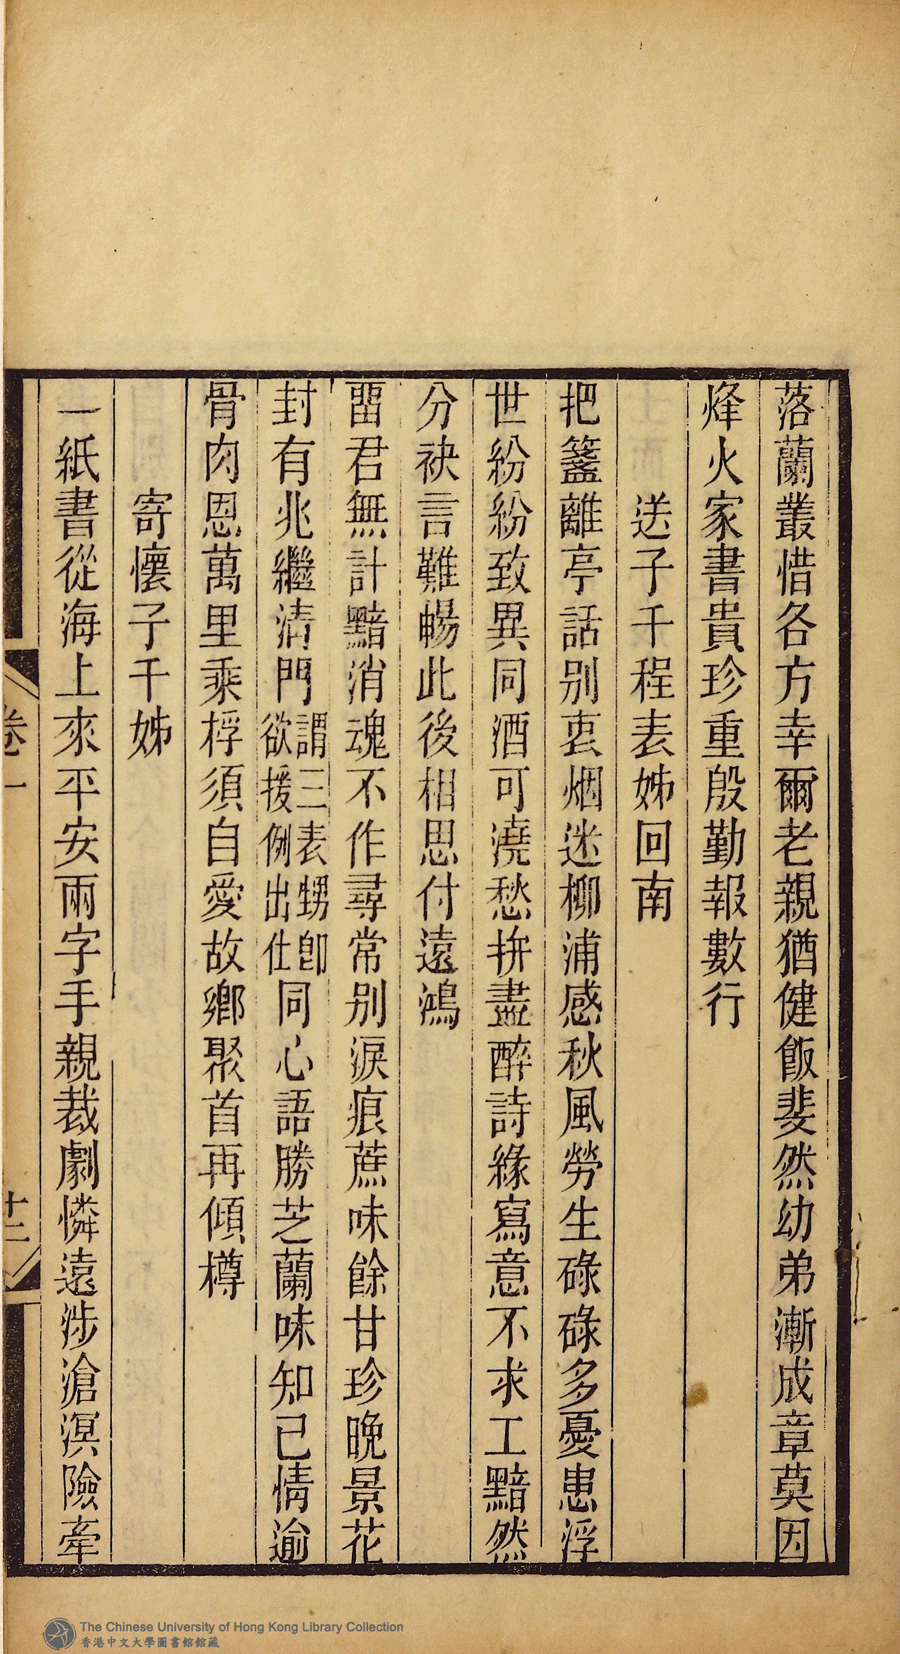 落蘭叢惜各方幸爾老親猶健飯斐然幼弟漸成章莫因
烽火家書貴珍重殷勤報數行
送子千程表姊回南
把盞離亭話别衷烟迷柳浦感秋風勞生碌碌多憂患浮
世紛紛致異同酒可澆愁拚盡醉詩緣寫意不求工黯然
分袂言難暢此後相思付遠鴻
畱君無計黯消魂不作尋常别淚痕蔗味餘甘珍晚景花
封有兆繼清門謂三表甥卽欲援例出仕同心語勝芝蘭味知己情逾
骨肉恩萬里乘桴須自愛故鄉聚首再傾樽
寄懷子千姊
一紙書從海上來平安兩字手親裁劇憐遠涉滄溟險牽
卷一
十二
The Chinese University of Hong Kong Library Collection
香港中文大學圖書館館藏